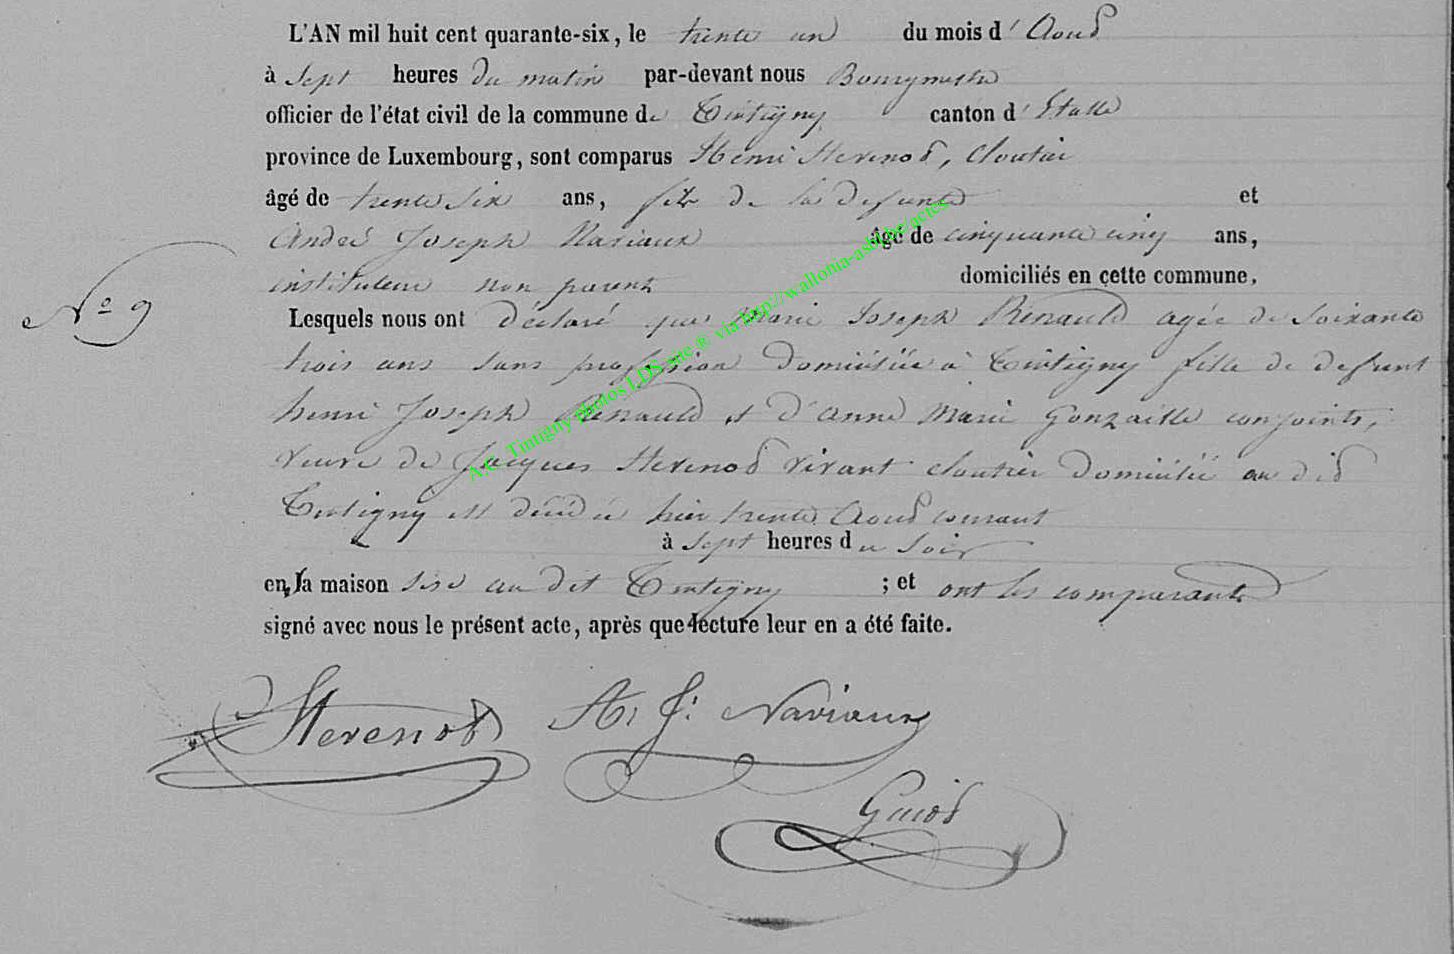 L'AN mil huit cent quarante-six, le trente un du mois d'Aout
à Sept heures du matin par-devant nous Bourgmestre
officier de l'état civil de la commune de Tintigny canton d'Etalle
province de Luxembourg, sont comparus Henri Hevenod, cloutier
âgé de trente six ans, fils de la defunte et
André Joseph Naviaux âgé de cinquante cinq ans,
instituteur non parent domiciliés en cette commune,
N° 9
Lesquels nous ont déclaré que Marie Joseph Renauld agée de soixante
trois ans sans profession domiciliée à Tintigny fille de defunt
henri Joseph Renauld et d'anne Marie Gonzaille conjoints,
veuve de Jacques Hevenod vivant cloutier domicilié au dit
Tintigny est décédée hier trente Aout courant
à Sept heures du Soir
en la maison sise au dit Tintigny ; et ont les comparants
signé avec nous le présent acte, après que lecture leur en a été faite.
Hevenod A. J. Naviaux
Guiod
A.C. Tintigny photos LDS site ® via http://wallonia-asbl.be/actes